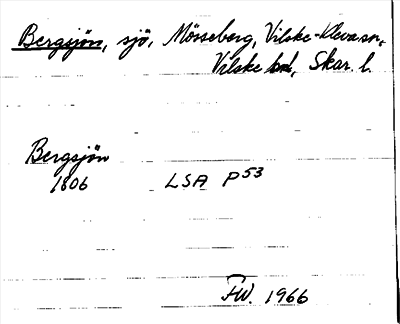 Bergsjön, sjö, Mösseberg, Vilske-Kleva sn,
Vilske hd, Skar. l.
Bergsjön
1806 LSA P 53
FW. 1966